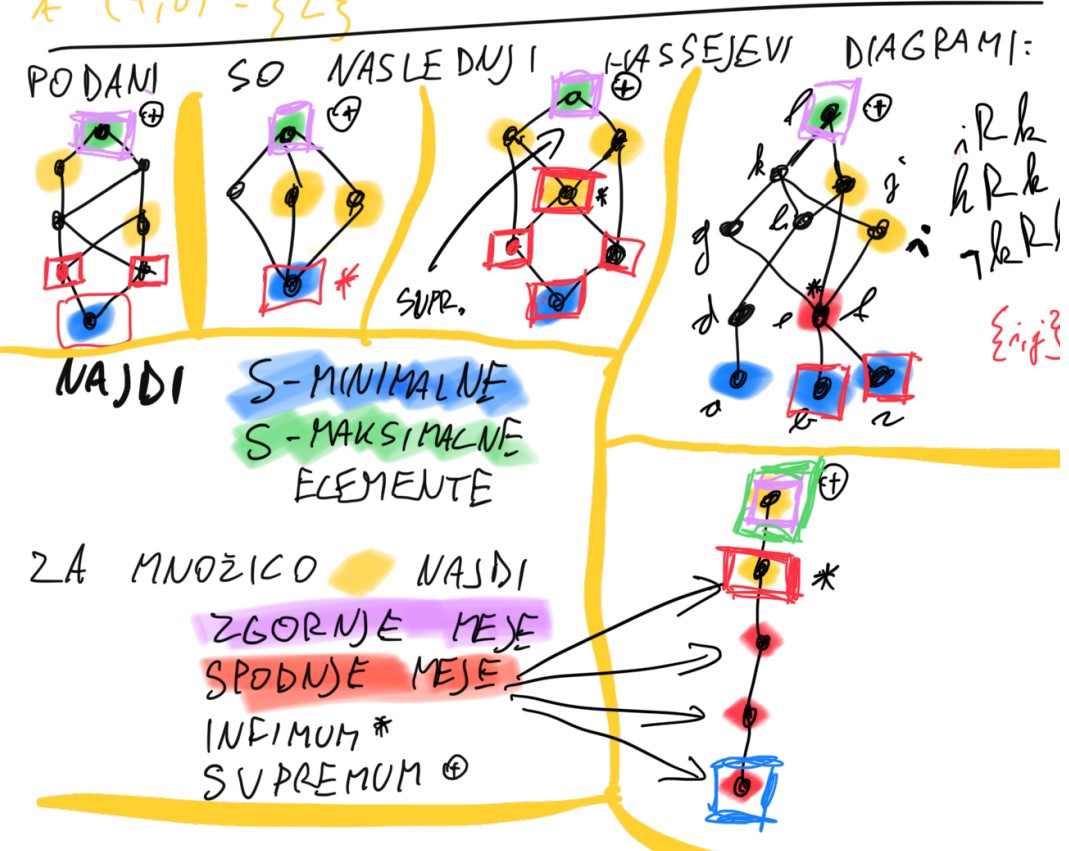 PODANI SO NASLEDNJI HASSEJEVI DIAGRAMI:
iRk
hRk
{i,j}
k
j
g
h
i
d
e
f
a
b
c
SUPR.
*
NAJDI S-MINIMALNE
S-MAKSIMALNE
ELEMENTE
ZA MNOŽICO NAJDI
ZGORNJE MEJE
SPODNJE MEJE
INFIMUM *
SUPREMUM ⊕